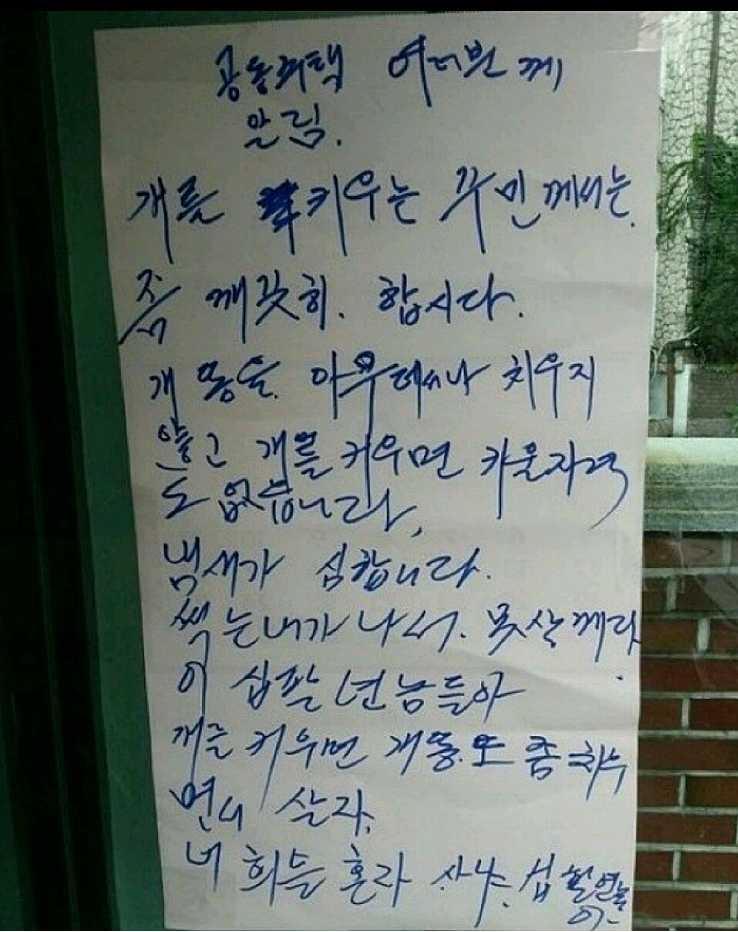 공동주택 여러분께
알림.
개를 키우는 주민께서는.
좀 깨끗히. 합시다.
개똥을. 아무데나 치우지
않고 개를 키우면 키울자격
도 없습니다,
냄새가 심합니다.
썩는내가 나서. 못살께다.
이 십팔 년놈들아
개를 키우면 개똥도 좀 치우
면서 살자,
너희들 혼라 사냐. 십팔연놈
아-